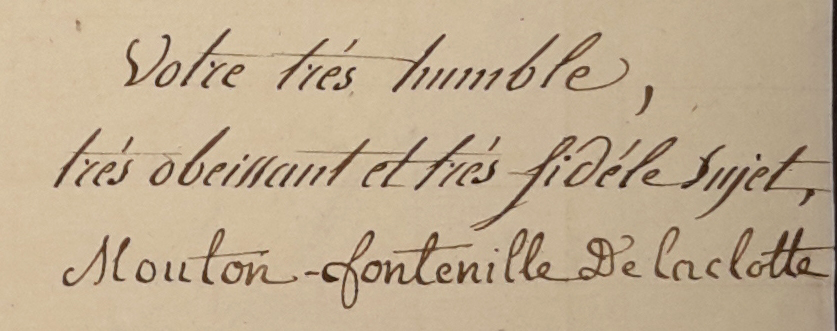 Votre trés humble,
trés obeissant et trés fidéle sujet,
Mouton-fontenille De laclotte